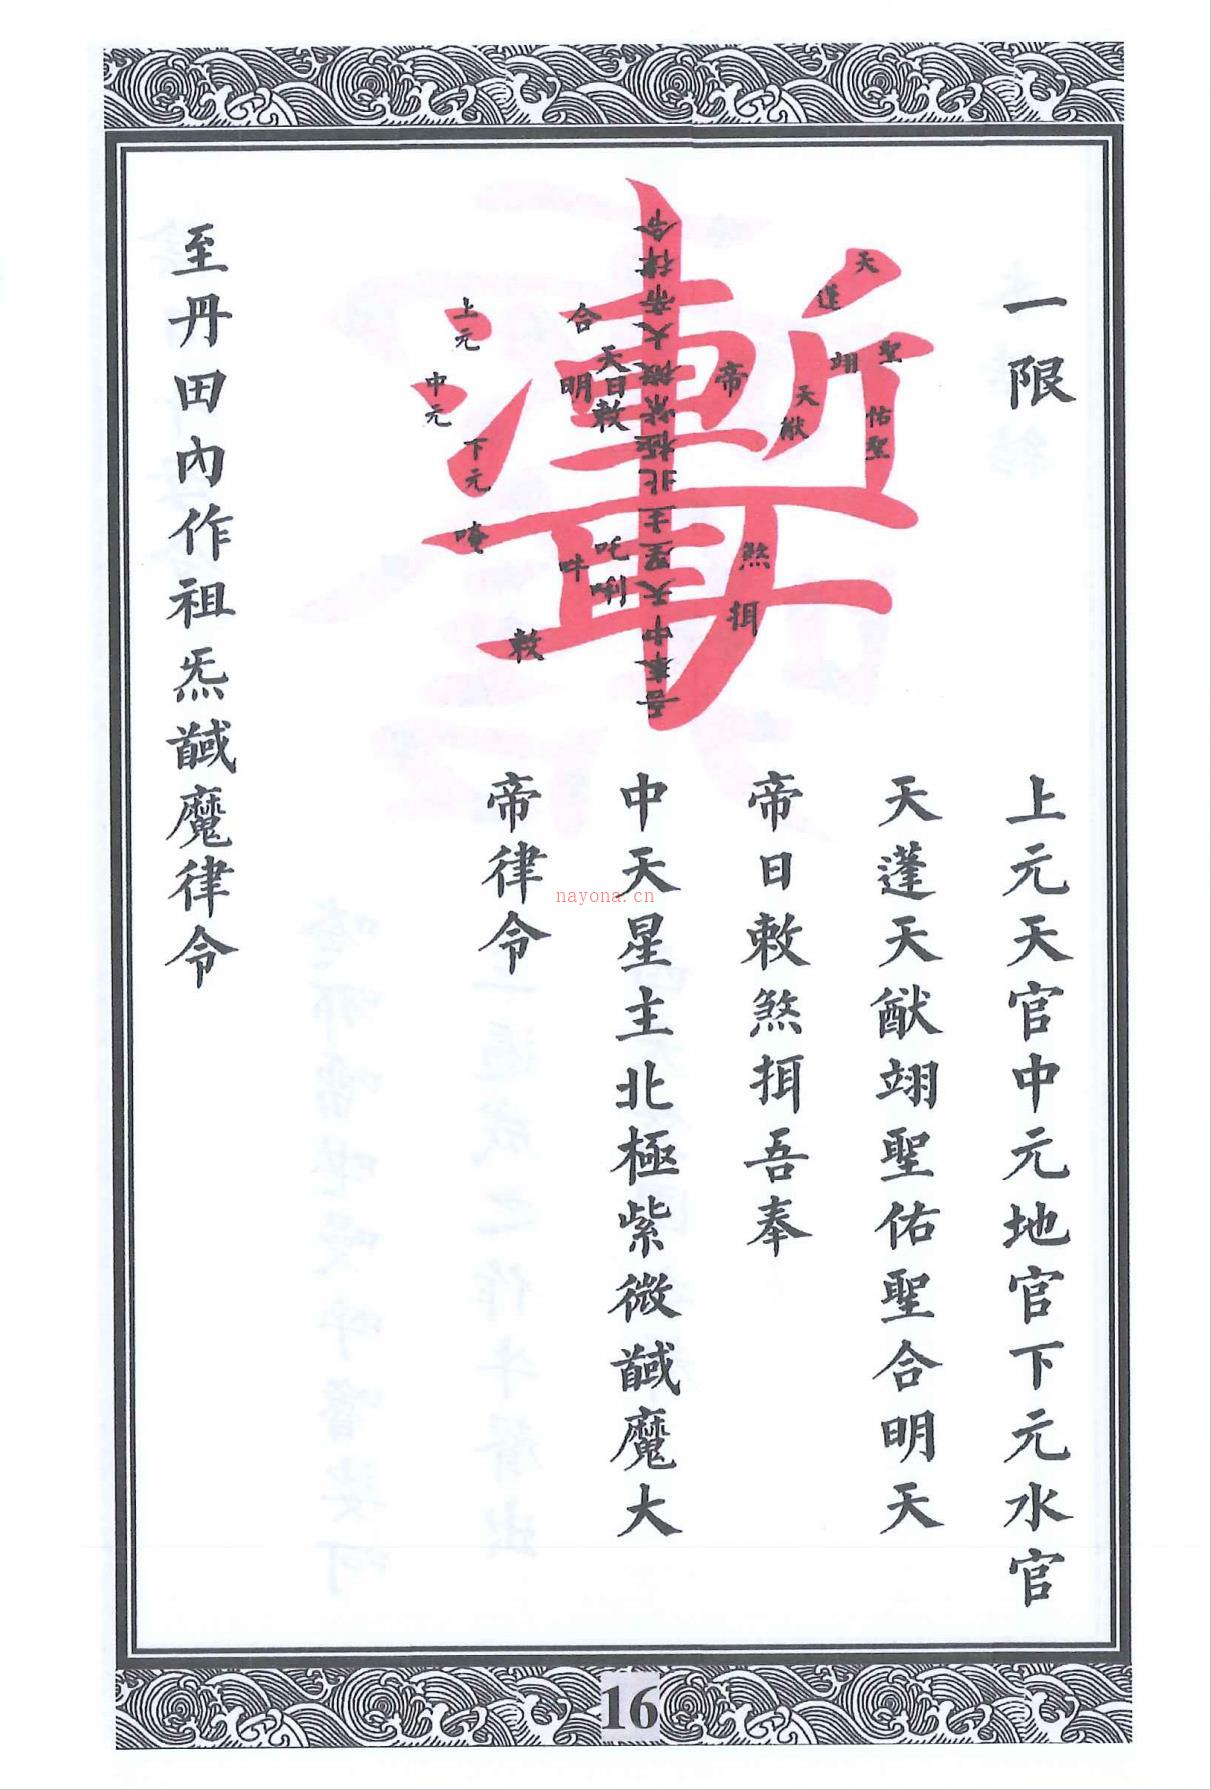 一限
上元天官中元地官下元水官
天蓬天猷翊聖佑聖合明天
帝日敕煞揖吾奉
中天星主北極紫微馘魔大
帝律令
至丹田內作祖炁馘魔律令
天蓬
天猷
翊聖
佑聖
合明天
帝日敕
煞揖
上元
中元
下元
唵吽吒唎
敕
吾奉中天星主北極紫微大帝律令
nayona.cn
16